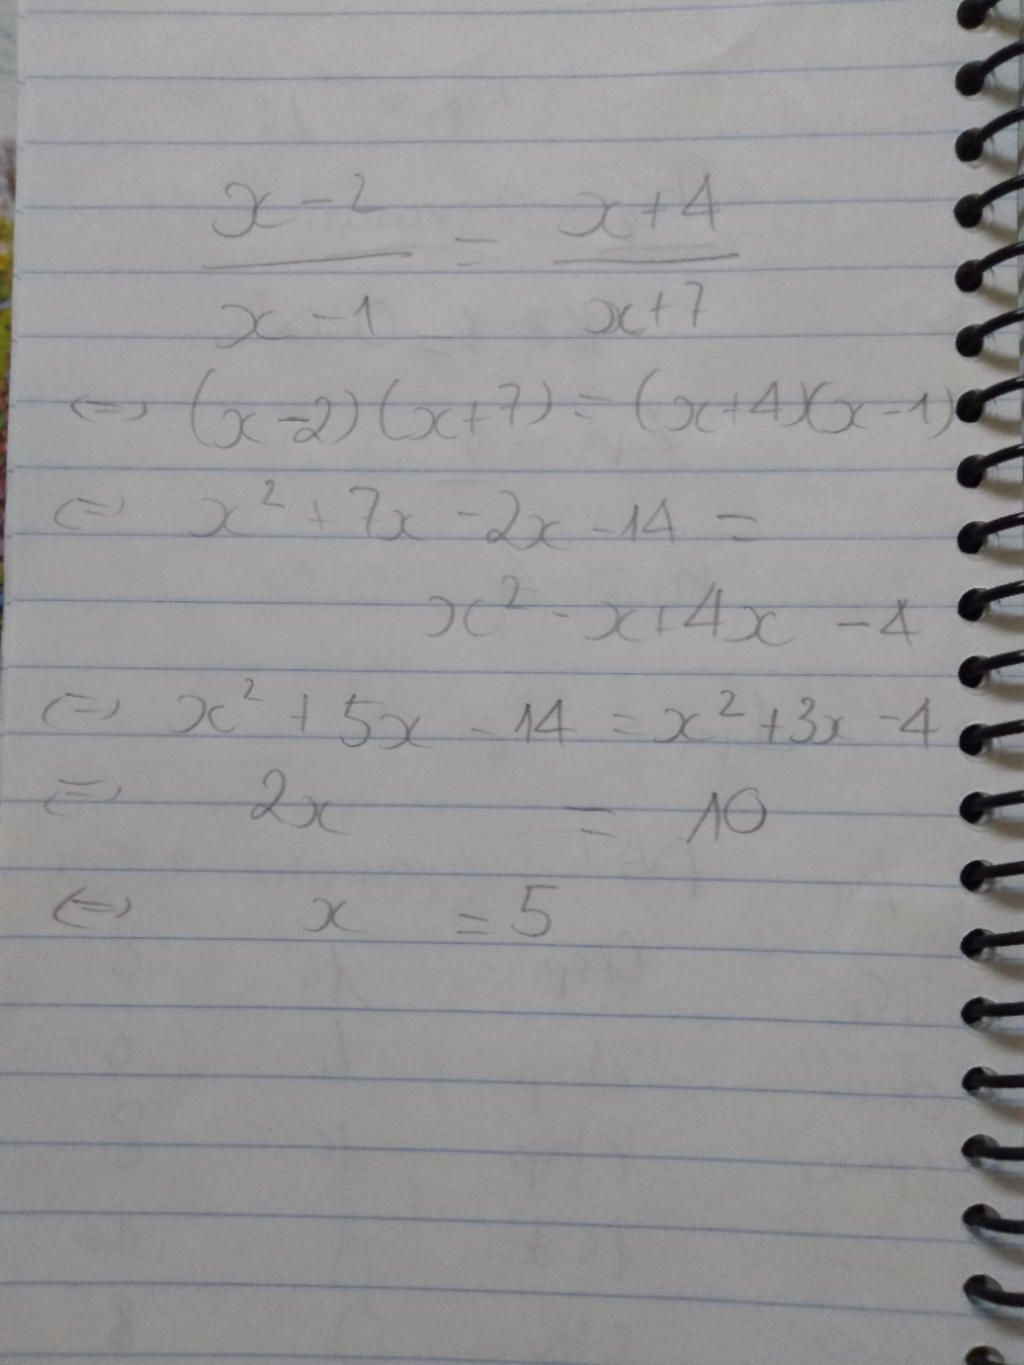 x-2 / x-1 = x+4 / x+7
⇔ (x-2)(x+7) = (x+4)(x-1)
⇔ x² + 7x - 2x - 14 =
x² - x + 4x - 4
⇔ x² + 5x - 14 = x² + 3x - 4
⇔ 2x = 10
⇔ x = 5